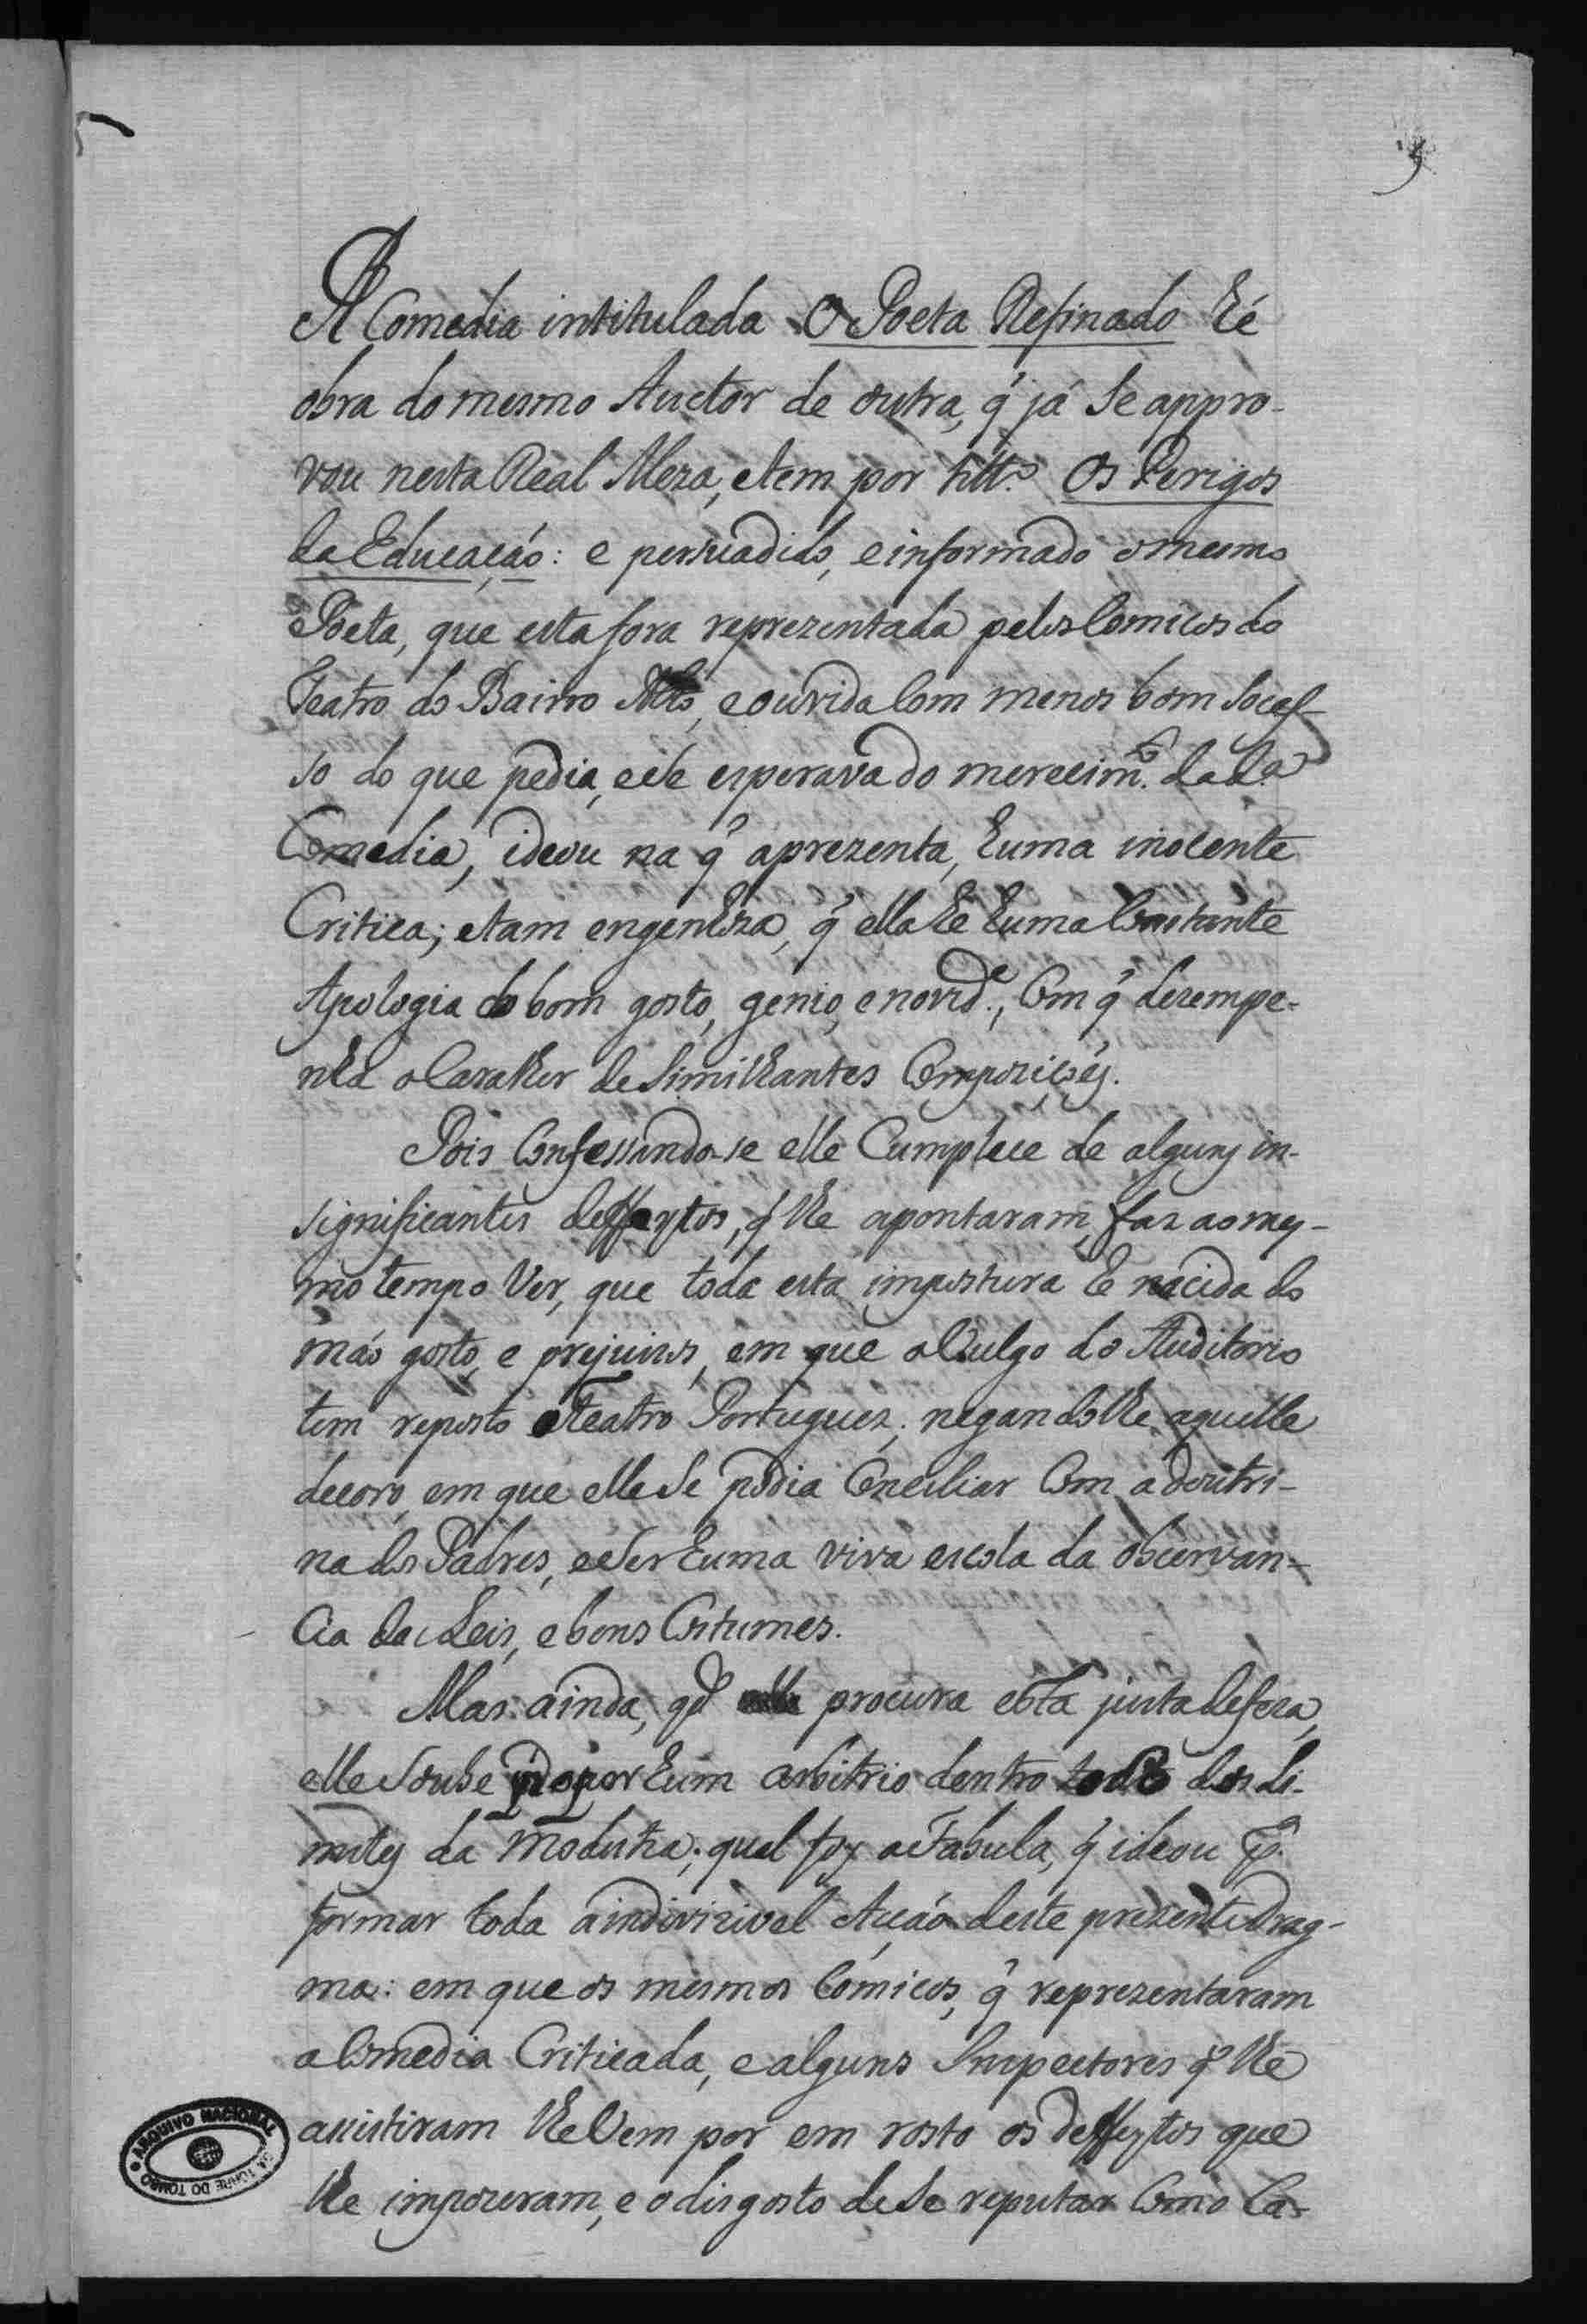 A Comedia intitulada O Poeta Refinado hé
obra do mesmo Auctor de outra, q̃ já se appro-
vou nesta Real Meza, e tem por titt.º Os Perigos
da Educação: e persuadido, e informado o mesmo
Poeta, que esta fora reprezentada pelos Comicos do
Teatro do Bairro Alto, e ouvida com menos bom soces-
so do que pedia, e se esperava do merecim.to da d.a
Comedia, ideou na q̃ aprezenta, huma inocente
Critica; e tam engenhoza, q̃ ella he huma Constante
Apologia do bom gosto, genio, e novid.e, Com q̃ dezempe-
nha o Carakter de Similhantes Compozições.
Pois Confessando-se elle Cumplece de alguns in-
significantes deffeytos, q̃ lhe apontaram, faz ao mes-
mo tempo Ver, que toda esta impostura he nacida do
máo gosto, e prejuizos, em que o Vulgo do Auditorio
tem reposto o Teatro Portuguez, negandolhe aquelle
decoro, em que elle se podia Conciliar Com a doutri-
na dos Padres, e ser huma viva escola da observan-
cia das Leis, e bons Costumes.
Mas ainda, qd.º procura esta justa defeza,
elle soube propor hum arbitrio dentro todo dos Li-
mites da Modestia; qual foy a Fabula, q̃ ideou p.ª
formar toda a indivizivel Acção deste prezente Drag-
ma: em que os mesmos Cómicos, q̃ reprezentaram
a Comedia Criticada, e alguns Inspectores q̃ lhe
assistiram lhe Vem por em rosto os deffeytos que
lhe impozeram, e o disgosto de se reputar Como Ca-
ARQUIVO NACIONAL DA TORRE DO TOMBO